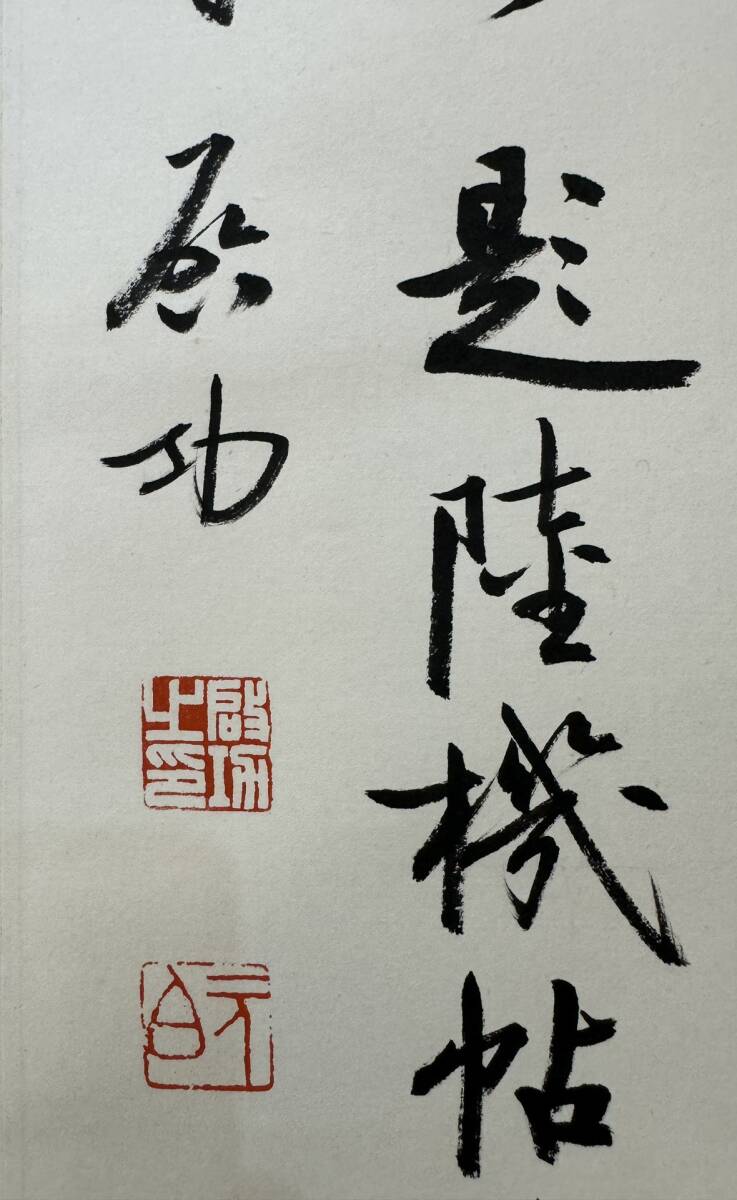 題陸機帖
启功
啟功之印
元白